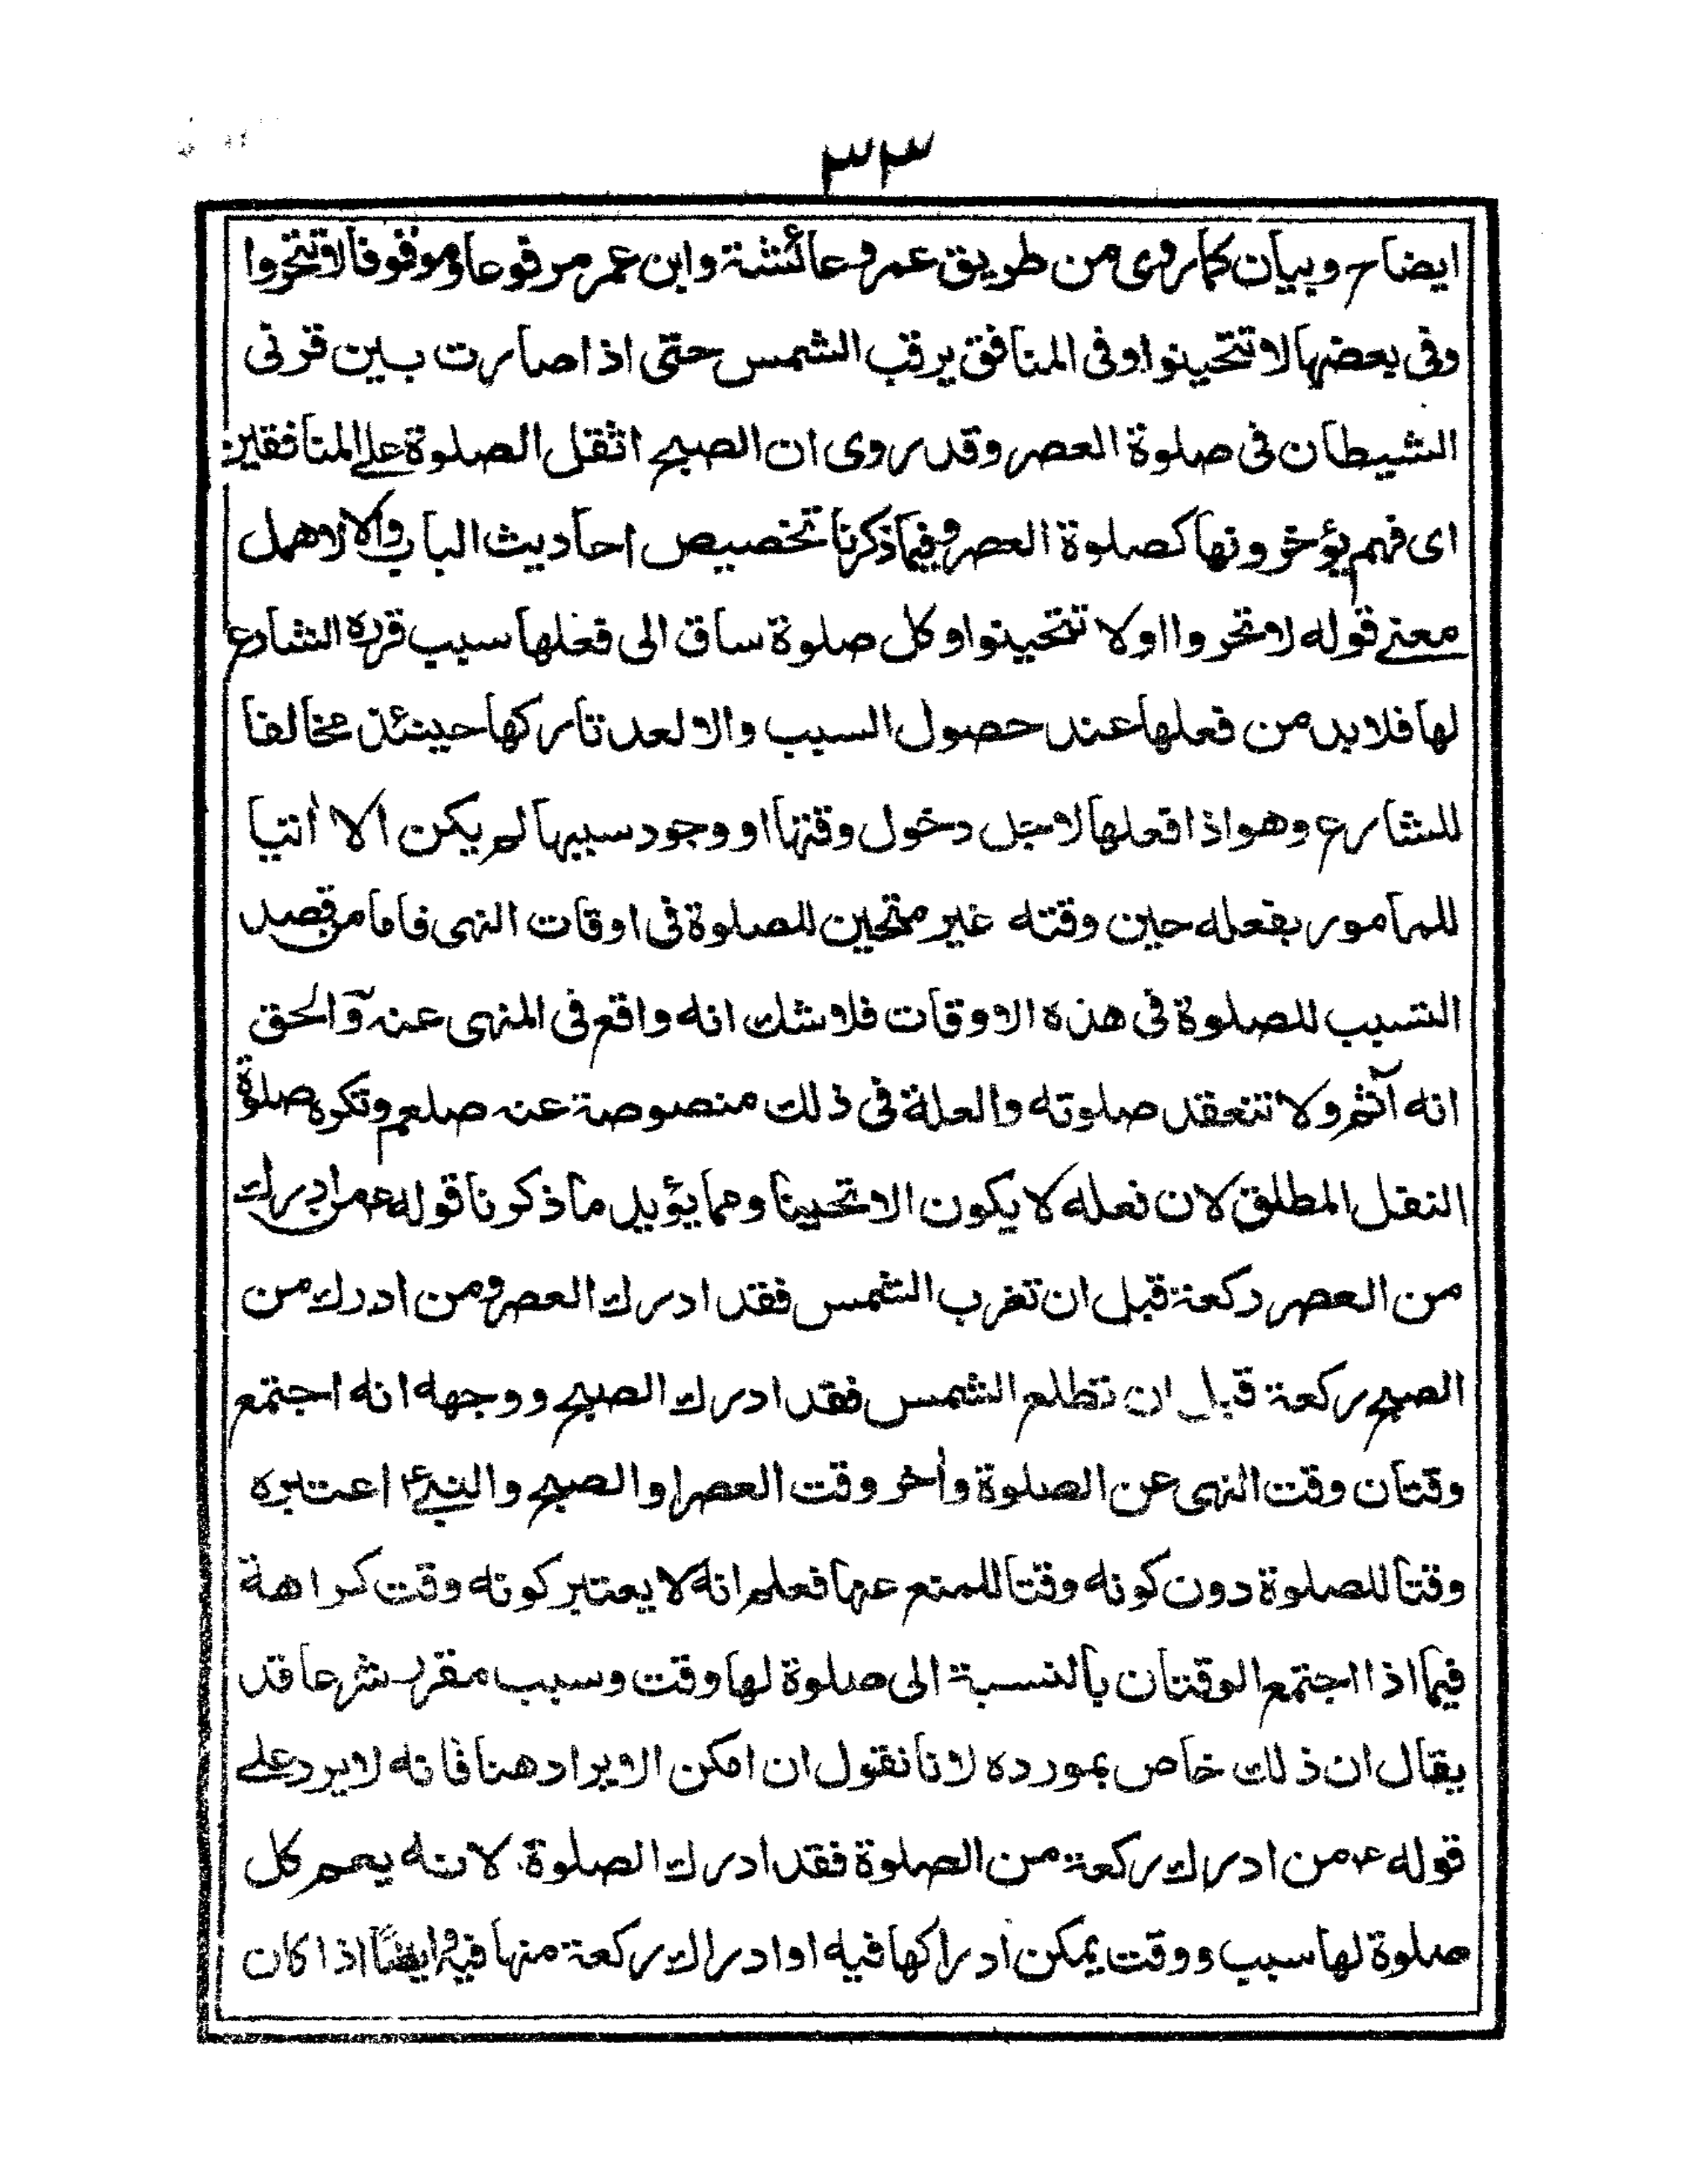 ٣٣
ايضاح وبيان كما روى من طريق عمر وعائشة وابن عمر مرفوعا وموقوفا لا تتحروا
وفى بعضها لا تتحينوا وفى المنافق يرقب الشمس حتى اذا صارت بين قرنى
الشيطان فى صلوة العصر وقد روى ان الصبح اثقل الصلوة على المنافقين
اى فهم يؤخرونها كصلوة العصر وفيما ذكرنا تخصيص احاديث الباب والا لزم اهمل
معنى قوله لا تحروا اولا تتحينوا وكل صلوة ساق الى فعلها سبب قرره الشارع
لها فلا بد من فعلها عند حصول السبب والا لعد تاركها حينئذ مخالفا
للشارع وهو اذا فعلها لاجل دخول وقتها او وجود سببها لم يكن الا اتيا
للمامور بفعله حين وقته غير متحين للصلوة فى اوقات النهى فاما من قصد
التسبب للصلوة فى هذه الاوقات فلا شك انه واقع فى المنهى عنه والحق
انه آثم ولا تنعقد صلوته والعلة فى ذلك منصوصة عنه صلعم وتكره صلوة
النفل المطلق لان فعله لا يكون الا تحينا ومما يؤيد ما ذكرنا قوله عم من ادرك
من العصر ركعة قبل ان تغرب الشمس فقد ادرك العصر ومن ادرك من
الصبح ركعة قبل ان تطلع الشمس فقد ادرك الصبح ووجهه انه اجتمع
وقتان وقت النهى عن الصلوة وأخر وقت العصر او الصبح والنبى ع اعتبره
وقتا للصلوة دون كونه وقتا للمنع عنها فعلم انه لا يعتبر كونه وقت كراهة
فيما اذا اجتمع الوقتان بالنسبة الى صلوة لها وقت وسبب مقرر شرعا قد
يقال ان ذلك خاص بمورده لانا نقول ان امكن الايراد هنا فانه لا يرد على
قوله ع من ادرك ركعة من الصلوة فقد ادرك الصلوة لانه يعم كل
صلوة لها سبب ووقت يمكن ادراكها فيه او ادراك ركعة منها فيه وايضًا اذا كان